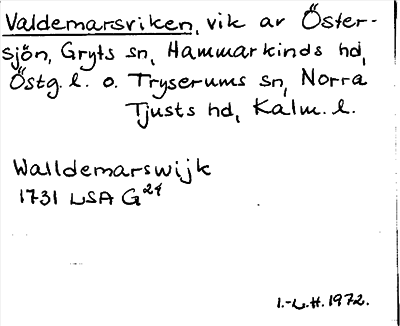 Valdemarsviken, vik av Öster-
sjön, Gryts sn, Hammarkinds hd,
Östg. l. o. Tryserums sn, Norra
Tjusts hd, Kalm. l.
Walldemarswijk
1731 LSA G24
I.-L.H. 1972.